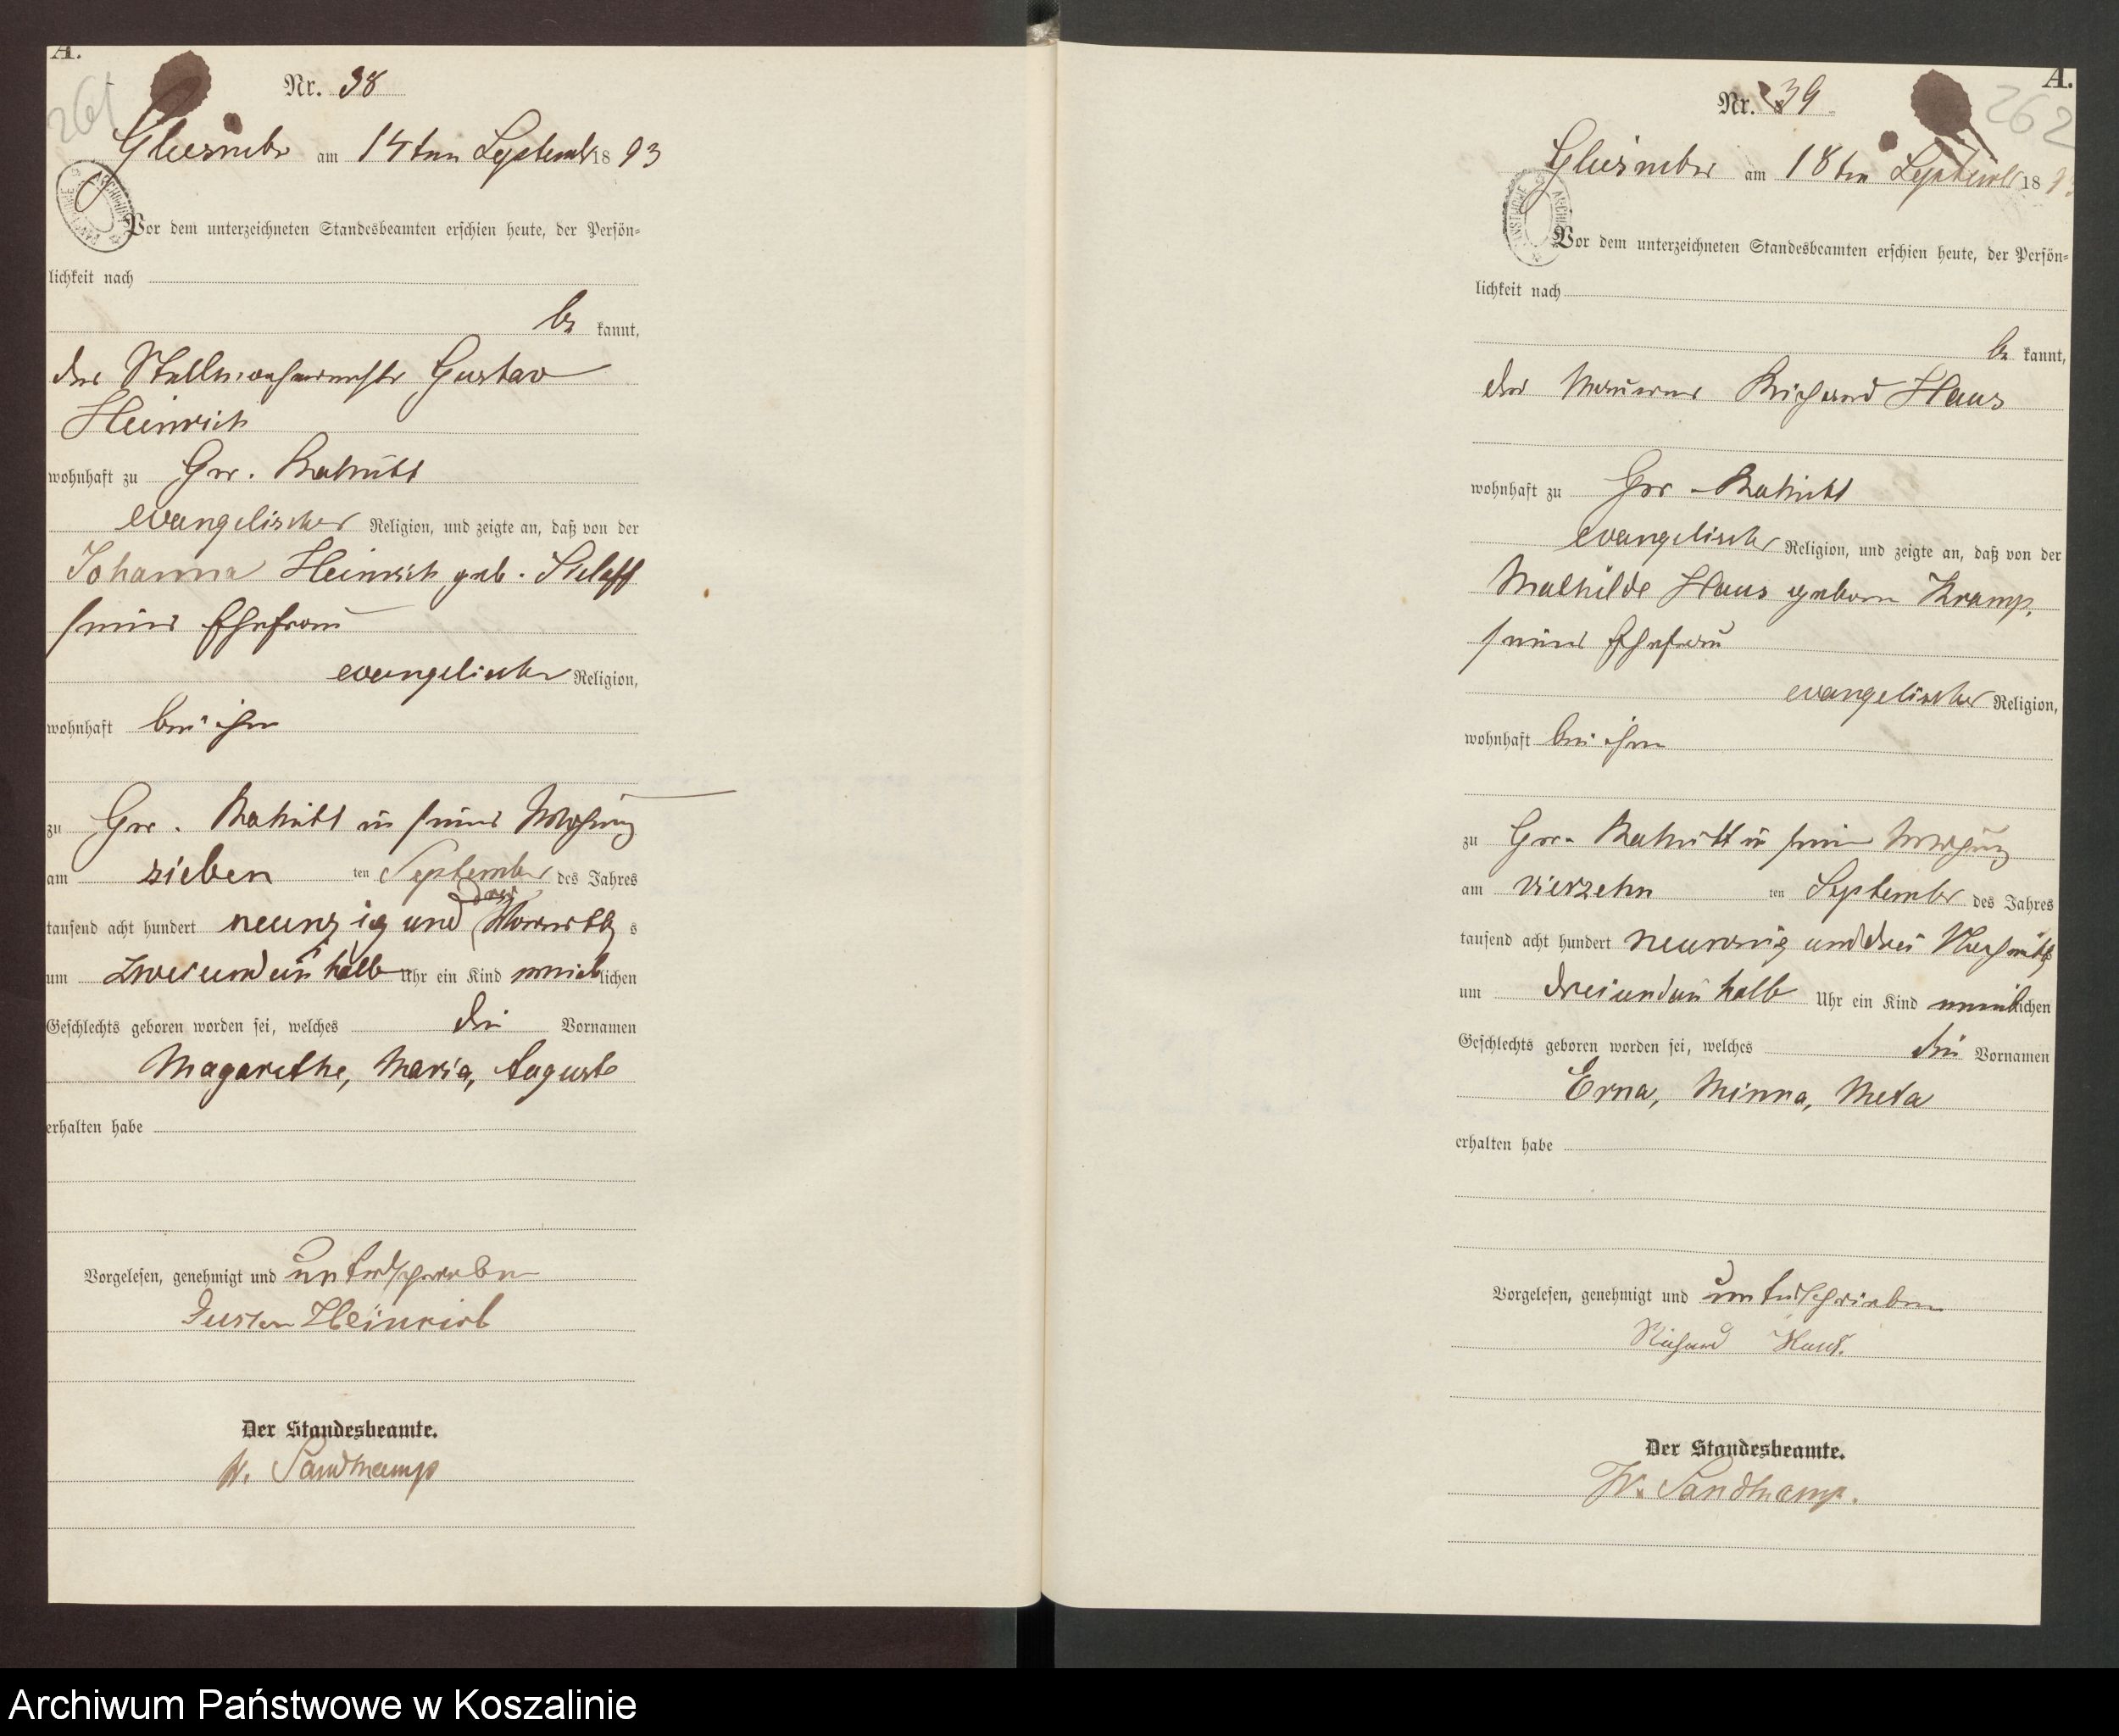 A.
261
Nr. 38
am 14ten Septemb 1893
Vor dem unterzeichneten Standesbeamten erschien heute, der Persön-
lichkeit nach
be kannt,
der Stellmachermeister Gustav
Heinrich
wohnhaft zu Gr.
evangelischer Religion, und zeigte an, daß von der
Johanna Heinrich geb.
seiner Ehefrau
evangelischer Religion,
wohnhaft bei ihm
zu Gr. in seiner Wohnung
am sieben ten September des Jahres
tausend acht hundert neunzig und drei Vormittags
um zwei und ein halb Uhr ein Kind weiblichen
Geschlechts geboren worden sei, welches die Vornamen
Magarethe, Maria, Auguste
erhalten habe
Vorgelesen, genehmigt und unterschrieben
Gustav Heinrich
Der Standesbeamte.
W. Sandkamp
A.
262
Nr. 39
am 18ten 18
Vor dem unterzeichneten Standesbeamten erschien heute, der Persön-
lichkeit nach
be kannt,
der Maurer Richard Haus
wohnhaft zu Gr
evangelischer Religion, und zeigte an, daß von der
Mathilde Haus geboren Kramp,
seiner Ehefrau
evangelischer Religion,
wohnhaft bei ihm
zu Gr. in seiner Wohnung
am vierzehn ten September des Jahres
tausend acht hundert neunzig und drei Nachmittags
um drei und ein halb Uhr ein Kind weiblichen
Geschlechts geboren worden sei, welches die Vornamen
Erna, Minna, Meta
erhalten habe
Vorgelesen, genehmigt und unterschrieben
Richard Haus.
Der Standesbeamte.
W. Sandkamp.
Archiwum Państwowe w Koszalinie